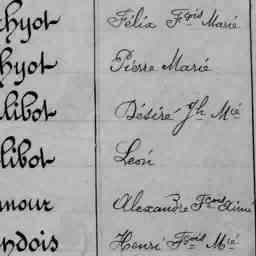 chyot Félix Fçois Marie
hyot Pierre Marie
libot Désiré Jh Mie
libot Léon
mour Alexandre Fçois Aimé
ndois Henri Fçois Mie